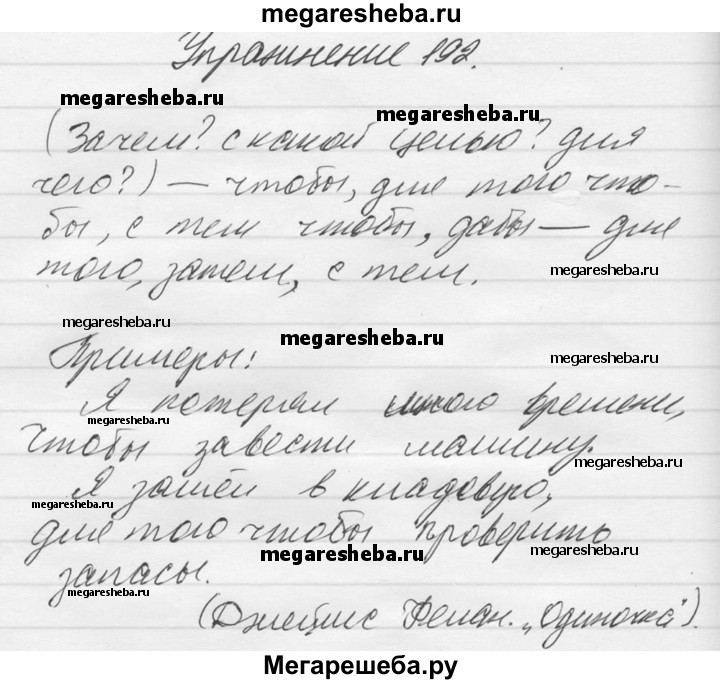 megaresheba.ru
Упражнение 192.
megaresheba.ru
megaresheba.ru
(Зачем? с какой целью? для
чего?) — чтобы, для того что-
бы, с тем чтобы, дабы — для
того, затем, с тем.
megaresheba.ru
megaresheba.ru
megaresheba.ru
Примеры:
megaresheba.ru
Я потерял много времени,
megaresheba.ru
чтобы завести машину.
megaresheba.ru
Я зашёл в кладовую,
megaresheba.ru
для того чтобы проверить
megaresheba.ru
megaresheba.ru
запасы.
megaresheba.ru
(Джеймс Фелан. „Одиночка“).
Мегарешеба.ру